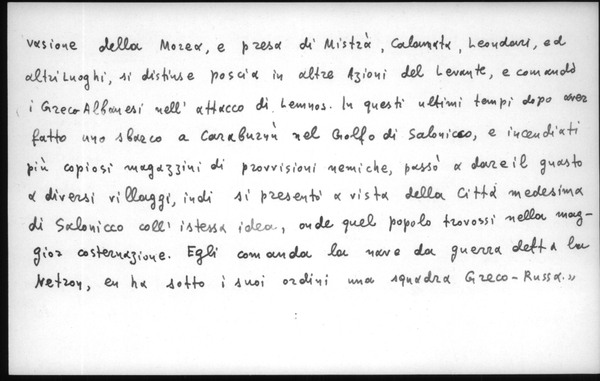 vasione della Morea, e presa di Mistrà, Calamata, Leondari, ed
altri Luoghi, si distinse poscia in altre Azioni del Levante, e comandò
i Greco-Albanesi nell' attacco di Lemnos. In questi ultimi tempi dopo aver
fatto uno sbarco a Caraburnù nel Golfo di Salonicco, e incendiati
più copiosi magazzini di provvisioni nemiche, passò a dare il guasto
a diversi villaggi, indi si presentò a vista della Città medesima
di Salonicco coll' istessa idea, onde quel popolo trovossi nella mag-
gior costernazione. Egli comanda la nave da guerra detta la
Netron, en ha sotto i suoi ordini una squadra Greco-Russa.»